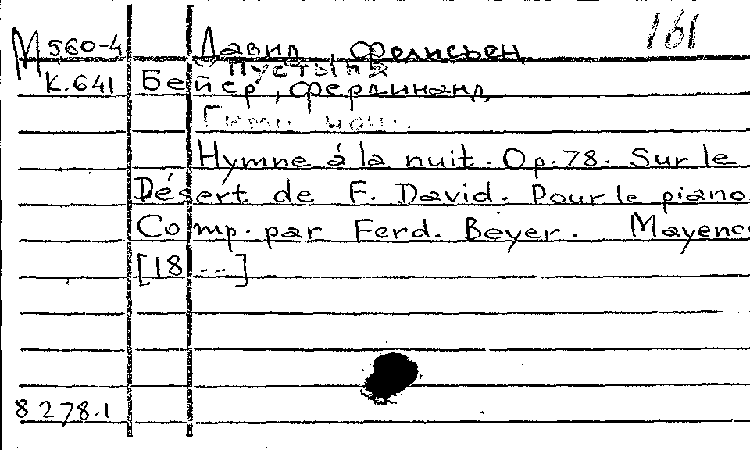 161
М 560-4 Давид, Фелисьен
Пустыня
К.641 Бейер, Фердинанд
Гимн ночи.
Hymne á la nuit. Op. 78. Sur le
Désert de F. David. Pour le piano
Comp. par Ferd. Beyer. Mayence
[18...]
8278.1